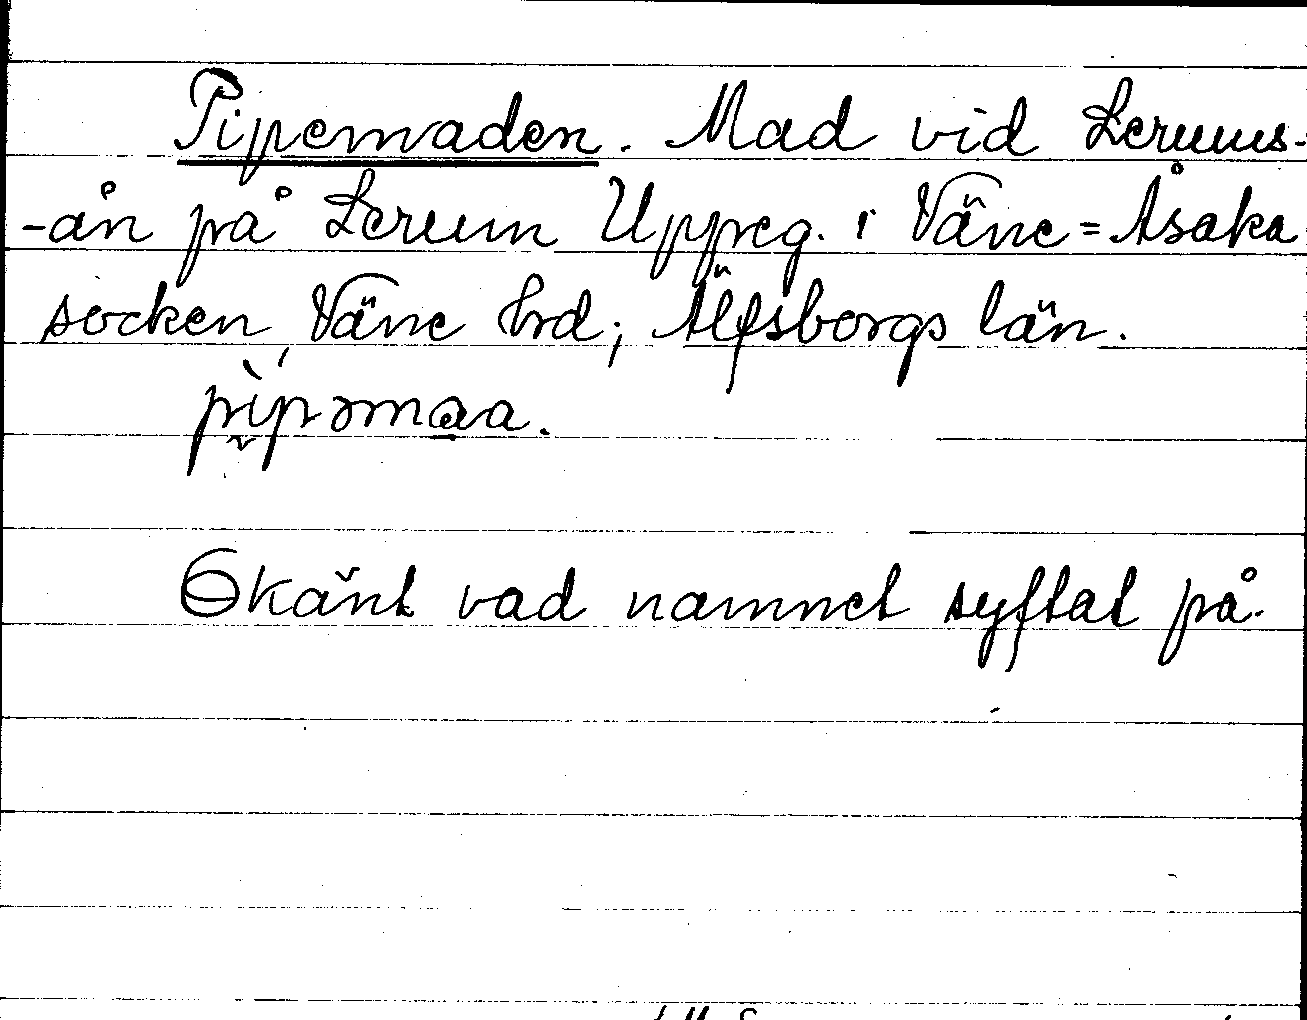 Pipemaden. Mad vid Lerums-
-ån på Lerum Uppeg. i Väne=Åsaka
socken, Väne hrd; Älfsborgs län.
pìpəmaa.
Okänt vad namnet syftat på.